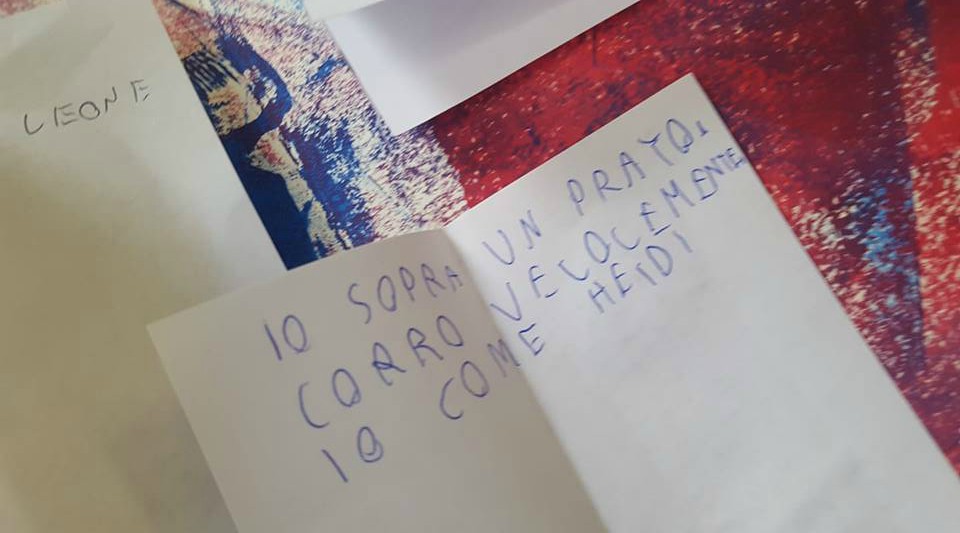 LEONE
IO SOPRA UN PRATO,
CORRO VELOCEMENTE
IO COME HEIDI